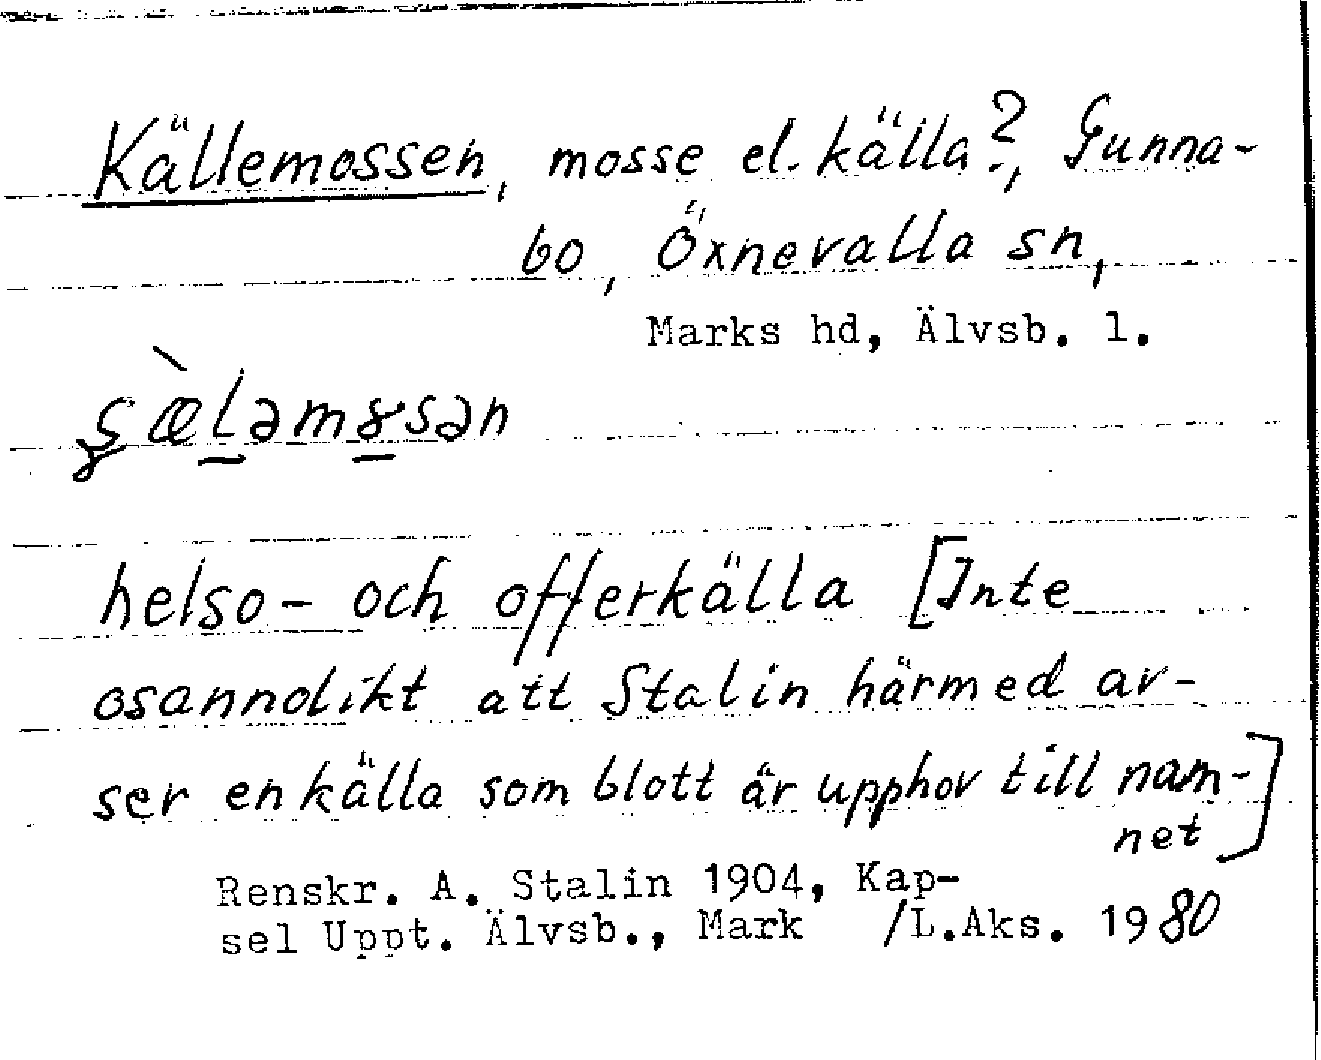 Källemossen, mosse el. källa?, Gunna-
bo, Öxnevalla sn,
Marks hd, Älvsb. l.
helso- och offerkälla [Inte
osannolikt att Stalin härmed av-
ser en källa som blott är upphov till nam-
net]
Renskr. A. Stalin 1904, Kap-
sel Uppt. Älvsb., Mark /L.Aks. 1980